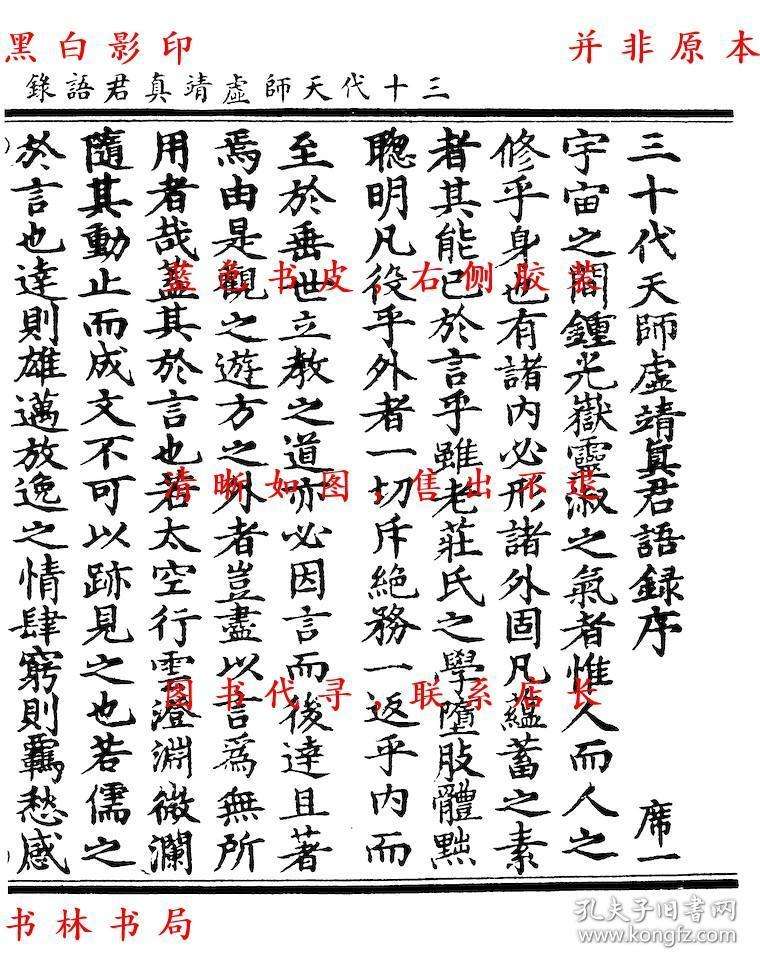 黑白影印
并非原本
三十代天師虛靖真君語錄
三十代天師虛靖真君語録序 席一
宇宙之間鍾光嶽靈淑之氣者惟人而人之
修乎身也有諸内必形諸外固凡蘊蓄之素
者其能已於言乎雖老莊氏之學墮肢體黜
聰明凡役乎外者一切斥絶務一返乎内而
至於垂世立教之道亦必因言而後達且著
焉由是觀之遊方之外者豈盡以言爲無所
用者哉蓋其於言也若太空行雲澄淵微瀾
隨其動止而成文不可以跡見之也若儒之
於言也達則雄邁放逸之情肆窮則羈愁感
蓝色书皮,右侧胶装
清晰如图,售出不退
图书代寻,联系店长
书林书局
孔夫子旧书网
www.kongfz.com